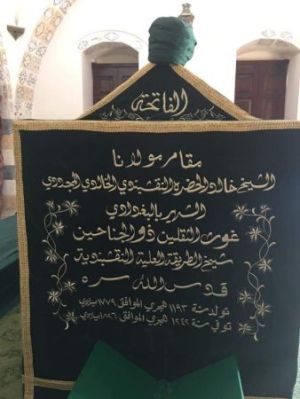 الفاتحة
مقام مولانا
الشيخ خالد الحضرة النقشبندي الخالدي المجددي
الشهير بالبغدادي
غوث الثقلين ذو الجناحين
شيخ الطريقة العلية النقشبندية
قدس الله سره
تولد سنة ١١٩٣ هجري الموافق ١٧٧٩ ميلادي
توفي سنة ١٢٤٢ هجري الموافق ١٨٢٦ ميلادي